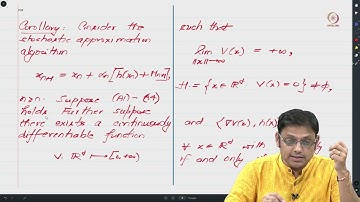 Corollary: Consider the
stochastic approximation
algorithm
x_{n+1} = x_n + α_n [h(x_n) + M_{n+1}],
n≥0. Suppose (A1) - (A4)
holds. Further suppose
there exists a continuously
differentiable function
V: ℝ^d ↦ [0, +∞)
such that
lim V(x) = +∞,
‖x‖→∞
H := {x ∈ ℝ^d V(x) = 0} ≠ ∅,
and ⟨∇V(x), h(x)
∀ x ∈ ℝ^d with
if and only if